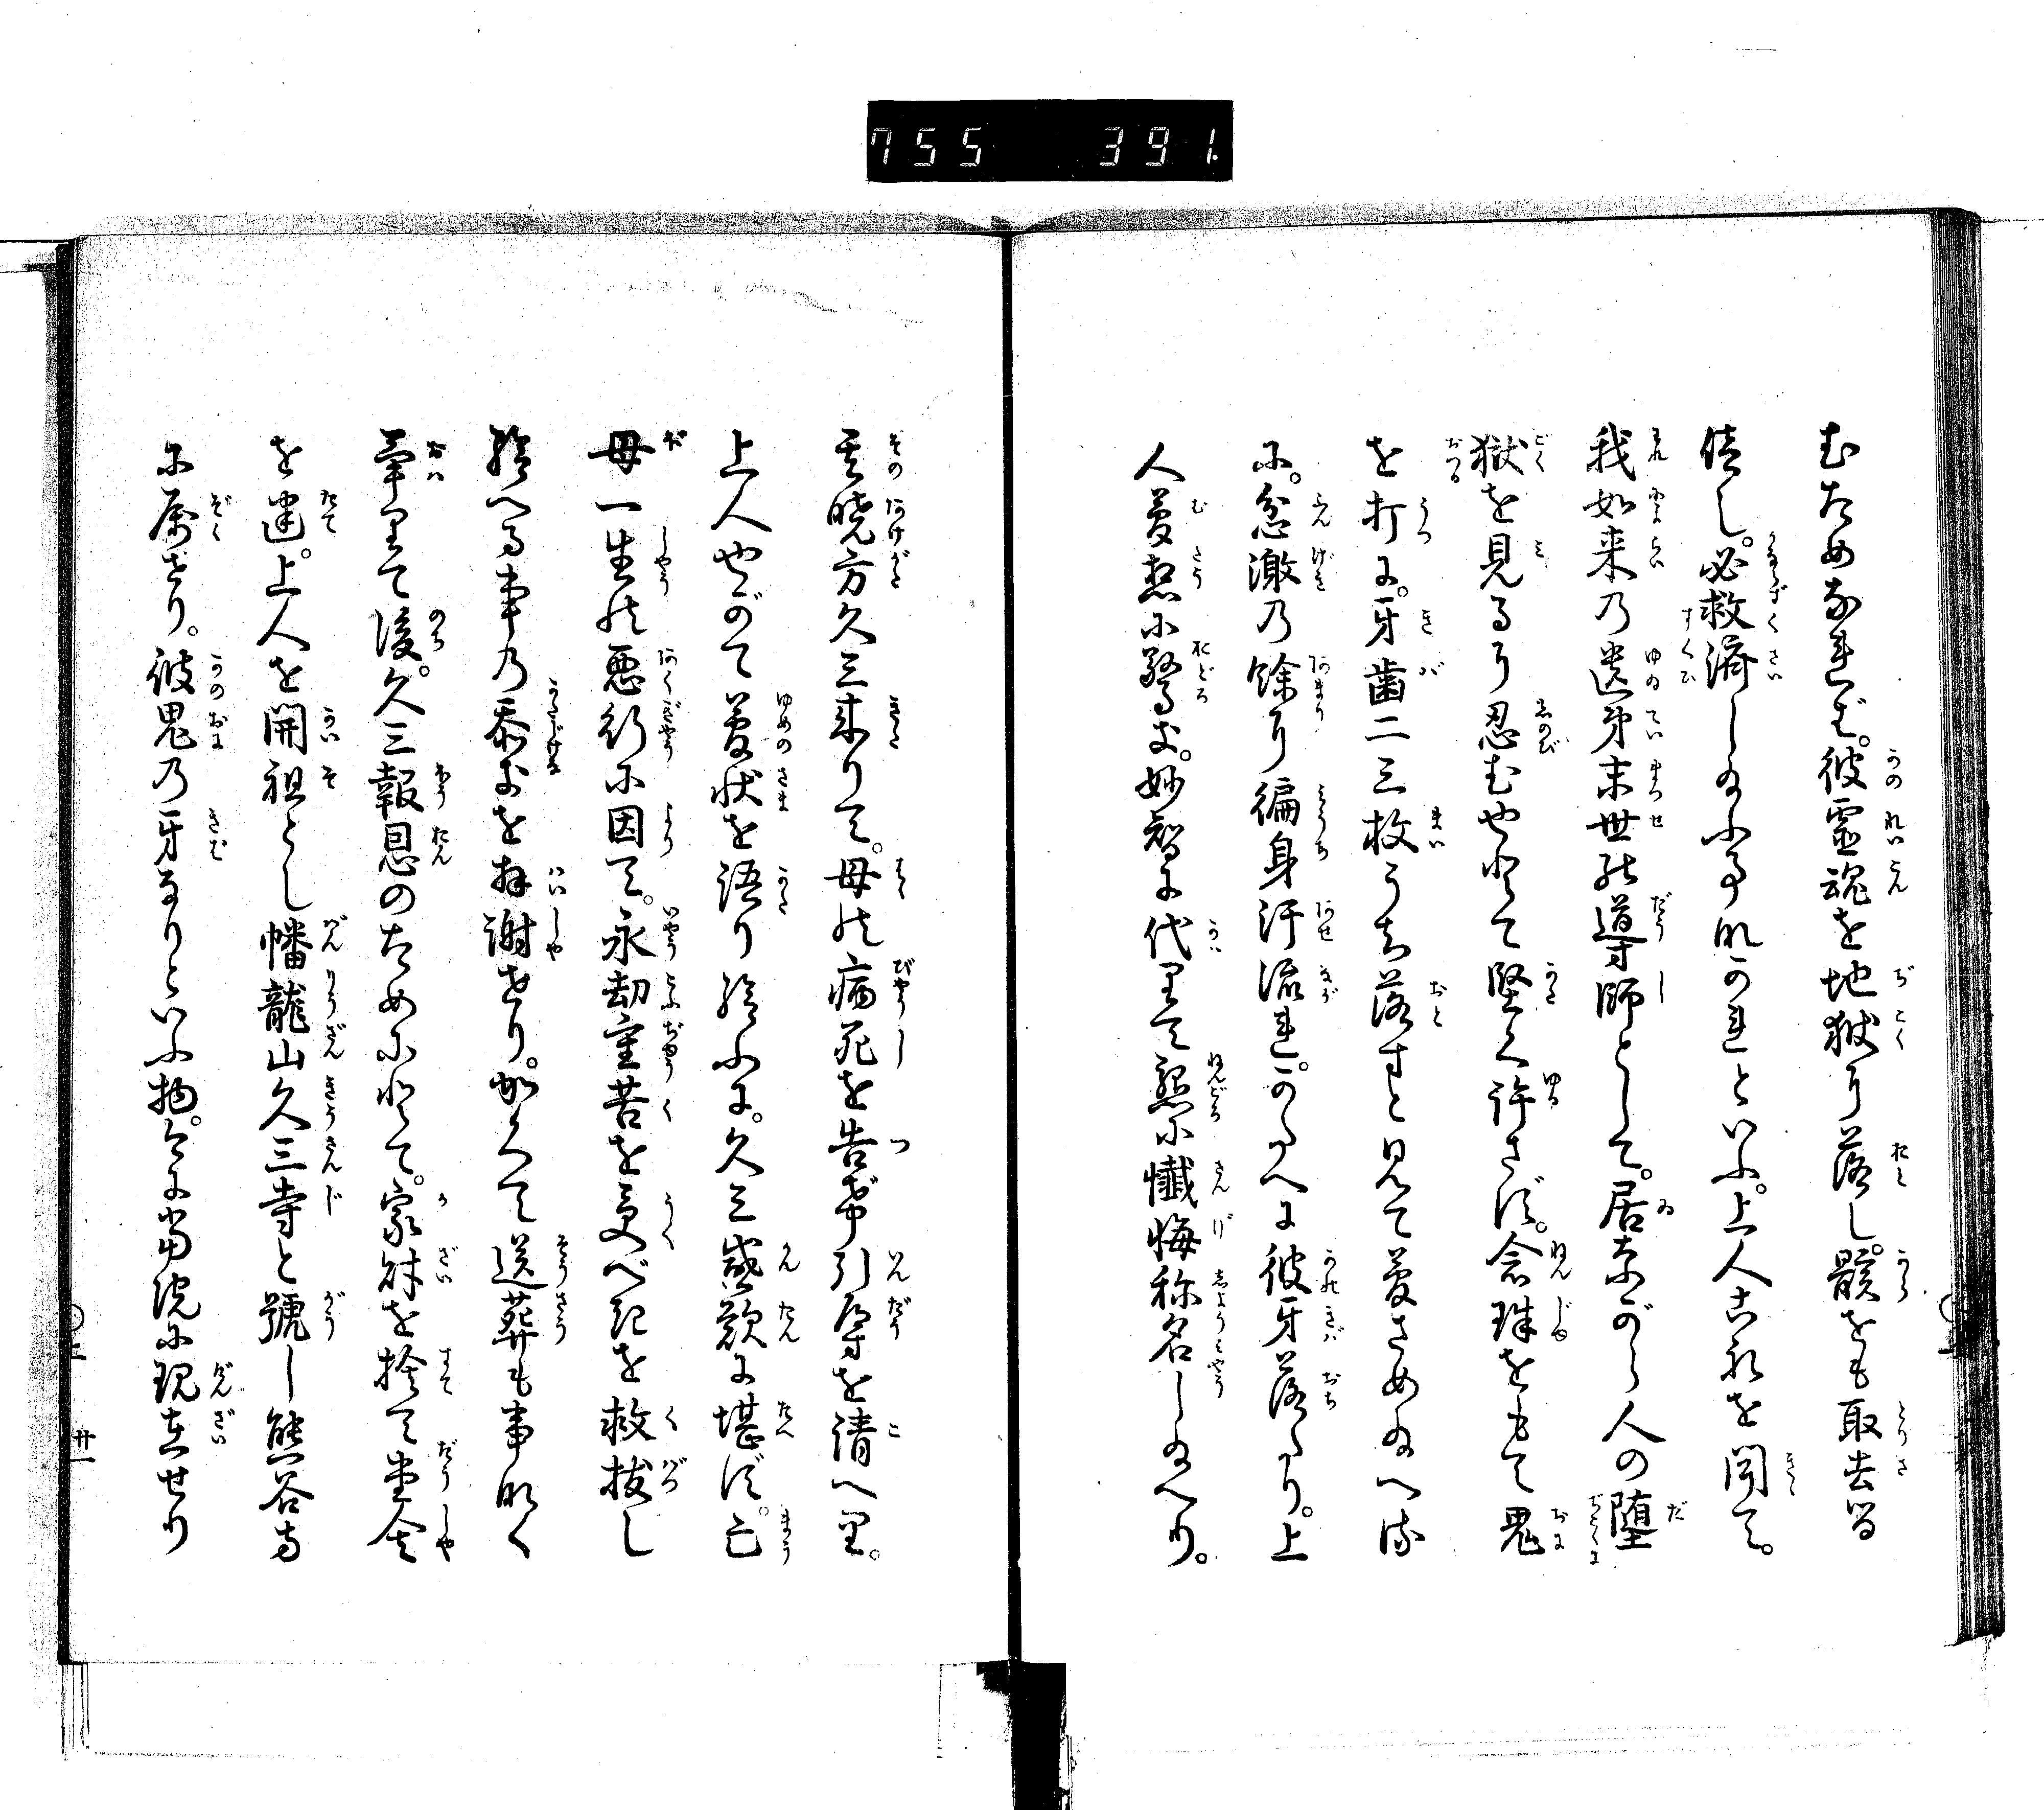 755 391.
むためなれば。彼霊魂を地獄に落し。骸をも取去る
使し。必救済し給ふ事なかれといふ。上人これを聞て。
我如来の遺弟末世の導師として。居ながら人の堕
獄を見るに忍むやとて堅く許さず。念珠をもて鬼
を打に。牙歯二三枚うち落すと見て夢さめ給へる
に。忿激の餘り徧身汗流れ。かたへに彼牙落たり。上
人夢想に驚き。妙智に代りて懇に懺悔称名し給へり。
其暁方久三来りて。母の病死を告げ引導を請へり。
上人やがて夢状を語り給ふに。久三感歎に堪ず。亡
母一生の悪行に因て。永劫重苦を受べきを救抜し
給へる事の忝なきを拝謝せり。かくて送葬も事なく
畢りて後。久三報恩のためにとて。家財を捨て堂舎
を建。上人を開祖とし幡龍山久三寺と號し熊谷寺
に属せり。彼鬼の牙なりといふ物。今に当院に現在せり
上 廿一